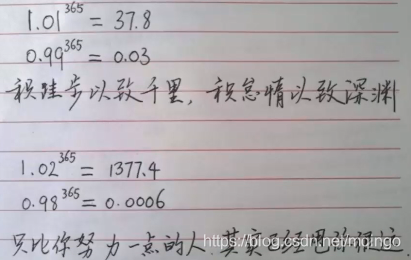 1.01^365 = 37.8
0.99^365 = 0.03
积跬步以致千里，积怠惰以致深渊
1.02^365 = 1377.4
0.98^365 = 0.0006
只比你努力一点的人，其实已经甩你很远
https://blog.csdn.net/mqingo